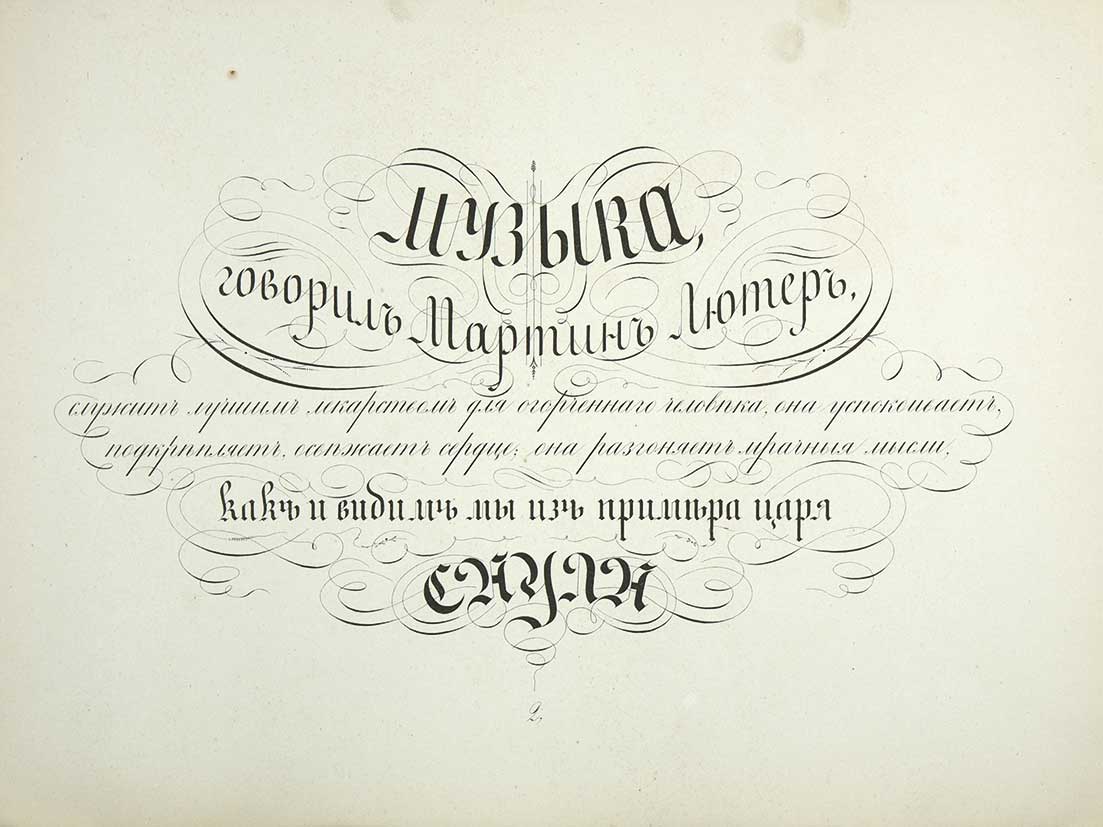 Музыка,
говорилъ Мартинъ Лютеръ,
служитъ лучшимъ лекарствомъ для огорченнаго человѣка, она успокоиваетъ,
подкрѣпляетъ, освѣжаетъ сердце; она разгоняетъ мрачныя мысли,
какъ и видимъ мы изъ примѣра царя
САУЛА
2,